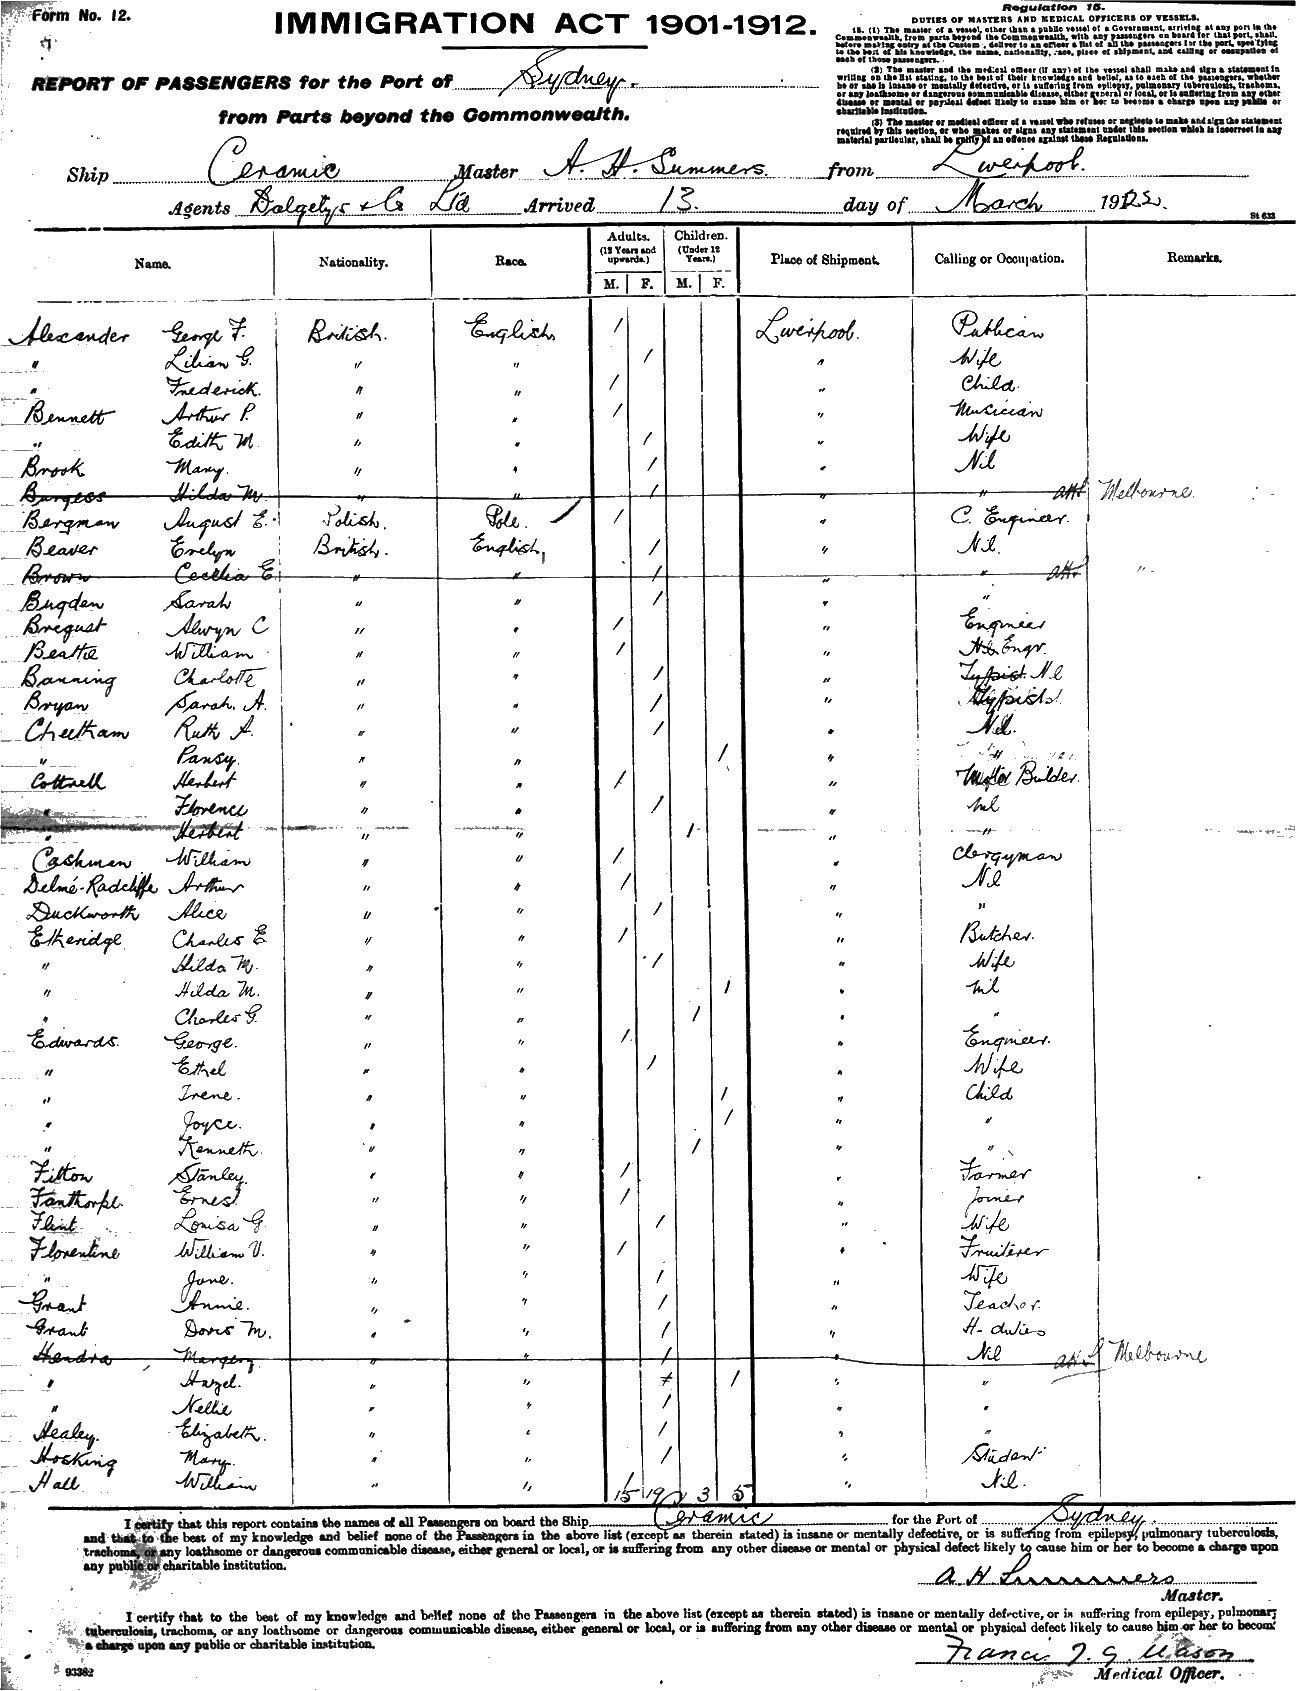 Form No. 12.
IMMIGRATION ACT 1901-1912.
Regulation 15.
DUTIES OF MASTERS AND MEDICAL OFFICERS OF VESSELS.
15. (1) The master of a vessel, other than a public vessel of a Government, arriving at any port in the
Commonwealth, from parts beyond the Commonwealth, with any passengers on board for that port, shall,
before making entry at the Custom , deliver to an officer a list of all the passengers for the port, specifying
to the best of his knowledge, the name, nationality, race, place of shipment, and calling or occupation of
each of those passengers.
(2) The master and the medical officer (if any) of the vessel shall make and sign a statement in
writing on the list stating, to the best of their knowledge and belief, as to each of the passengers, whether
he or she is insane or mentally defective, or is suffering from epilepsy, pulmonary tuberculosis, trachoma,
or any loathsome or dangerous communicable disease, either general or local, or is suffering from any other
disease or mental or physical defect likely to cause him or her to become a charge upon any public or
charitable institution.
(3) The master or medical officer of a vessel who refuses or neglects to make and sign the statement
required by this section, or who makes or signs any statement under this section which is incorrect in any
material particular, shall be guilty of an offence against these Regulations.
REPORT OF PASSENGERS for the Port of Sydney.
from Parts beyond the Commonwealth.
Ship Ceramic Master A. H. Summers from Liverpool.
Agents Dalgetys & Co Ltd Arrived 13. day of March 1922.
St 633
Name. Nationality. Race. Adults. (12 Years and upwards.) Children. (Under 12 Years.) Place of Shipment. Calling or Occupation. Remarks.
M. F. M. F.
Alexander George F. British. English. / Liverpool. Publican
" Lilian G. " " / " Wife
" Frederick. " " / " Child.
Bennett Arthur P. " " / " Musician
" Edith M. " " / " Wife
Brook Mary. " " / " Nil
Burgess Hilda M. " " / " " Melbourne.
Bergman August E. Polish. Pole. / " C. Engineer.
Beaver Evelyn British. English. / " Nil.
Brown Cecilia E " " / " " "
Bugden Sarah " " / " "
Bregust Alwyn C " " / " Engineer
Beattie William " " / " Engr.
Banning Charlotte " " / " Typist Nil
Bryan Sarah. A. " " / " Typist
Cheetham Ruth A. " " / " Nil.
" Pansy. " " / " "
Cottrell Herbert " " / " Motor Builder.
" Florence " " / " nil
" Herbert " " / " "
Cashman William " " / " Clergyman
Delmé-Radcliffe Arthur " " / " Nil
Duckworth Alice " " / " "
Etheridge Charles E " " / " Butcher.
" Hilda M. " " / " Wife
" Hilda M. " " / " nil
" Charles G. " " / " "
Edwards. George. " " / " Engineer.
" Ethel " " / " Wife
" Irene. " " / " Child
" Joyce. " " / " "
" Kenneth. " " / " "
Fitton Stanley. " " / " Farmer
Fanthorpe. Ernest " " / " Joiner
Flint Louisa G. " " / " Wife
Florentine William V. " " / " Fruiterer
" Jane. " " / " Wife
Grant Annie. " " / " Teacher.
Grant Doris M. " " / " H- duties
Hendra Margery " " / " Nil Melbourne
" Hazel. " " / " "
" Nellie " " / " "
Healey. Elizabeth. " " / " "
Hosking Mary. " " / " Student
Hall William " " 15 19 3 5 " Nil.
I certify that this report contains the names of all Passengers on board the Ship Ceramic for the Port of Sydney.
and that to the best of my knowledge and belief none of the Passengers in the above list (except as therein stated) is insane or mentally defective, or is suffering from epilepsy, pulmonary tuberculosis,
trachoma, or any loathsome or dangerous communicable disease, either general or local, or is suffering from any other disease or mental or physical defect likely to cause him or her to become a charge upon
any public or charitable institution.
A H Summers
Master.
I certify that to the best of my knowledge and belief none of the Passengers in the above list (except as therein stated) is insane or mentally defective, or is suffering from epilepsy, pulmonary
tuberculosis, trachoma, or any loathsome or dangerous communicable disease, either general or local, or is suffering from any other disease or mental or physical defect likely to cause him or her to become
a charge upon any public or charitable institution.
Francis J. G. Mason
Medical Officer.
93382